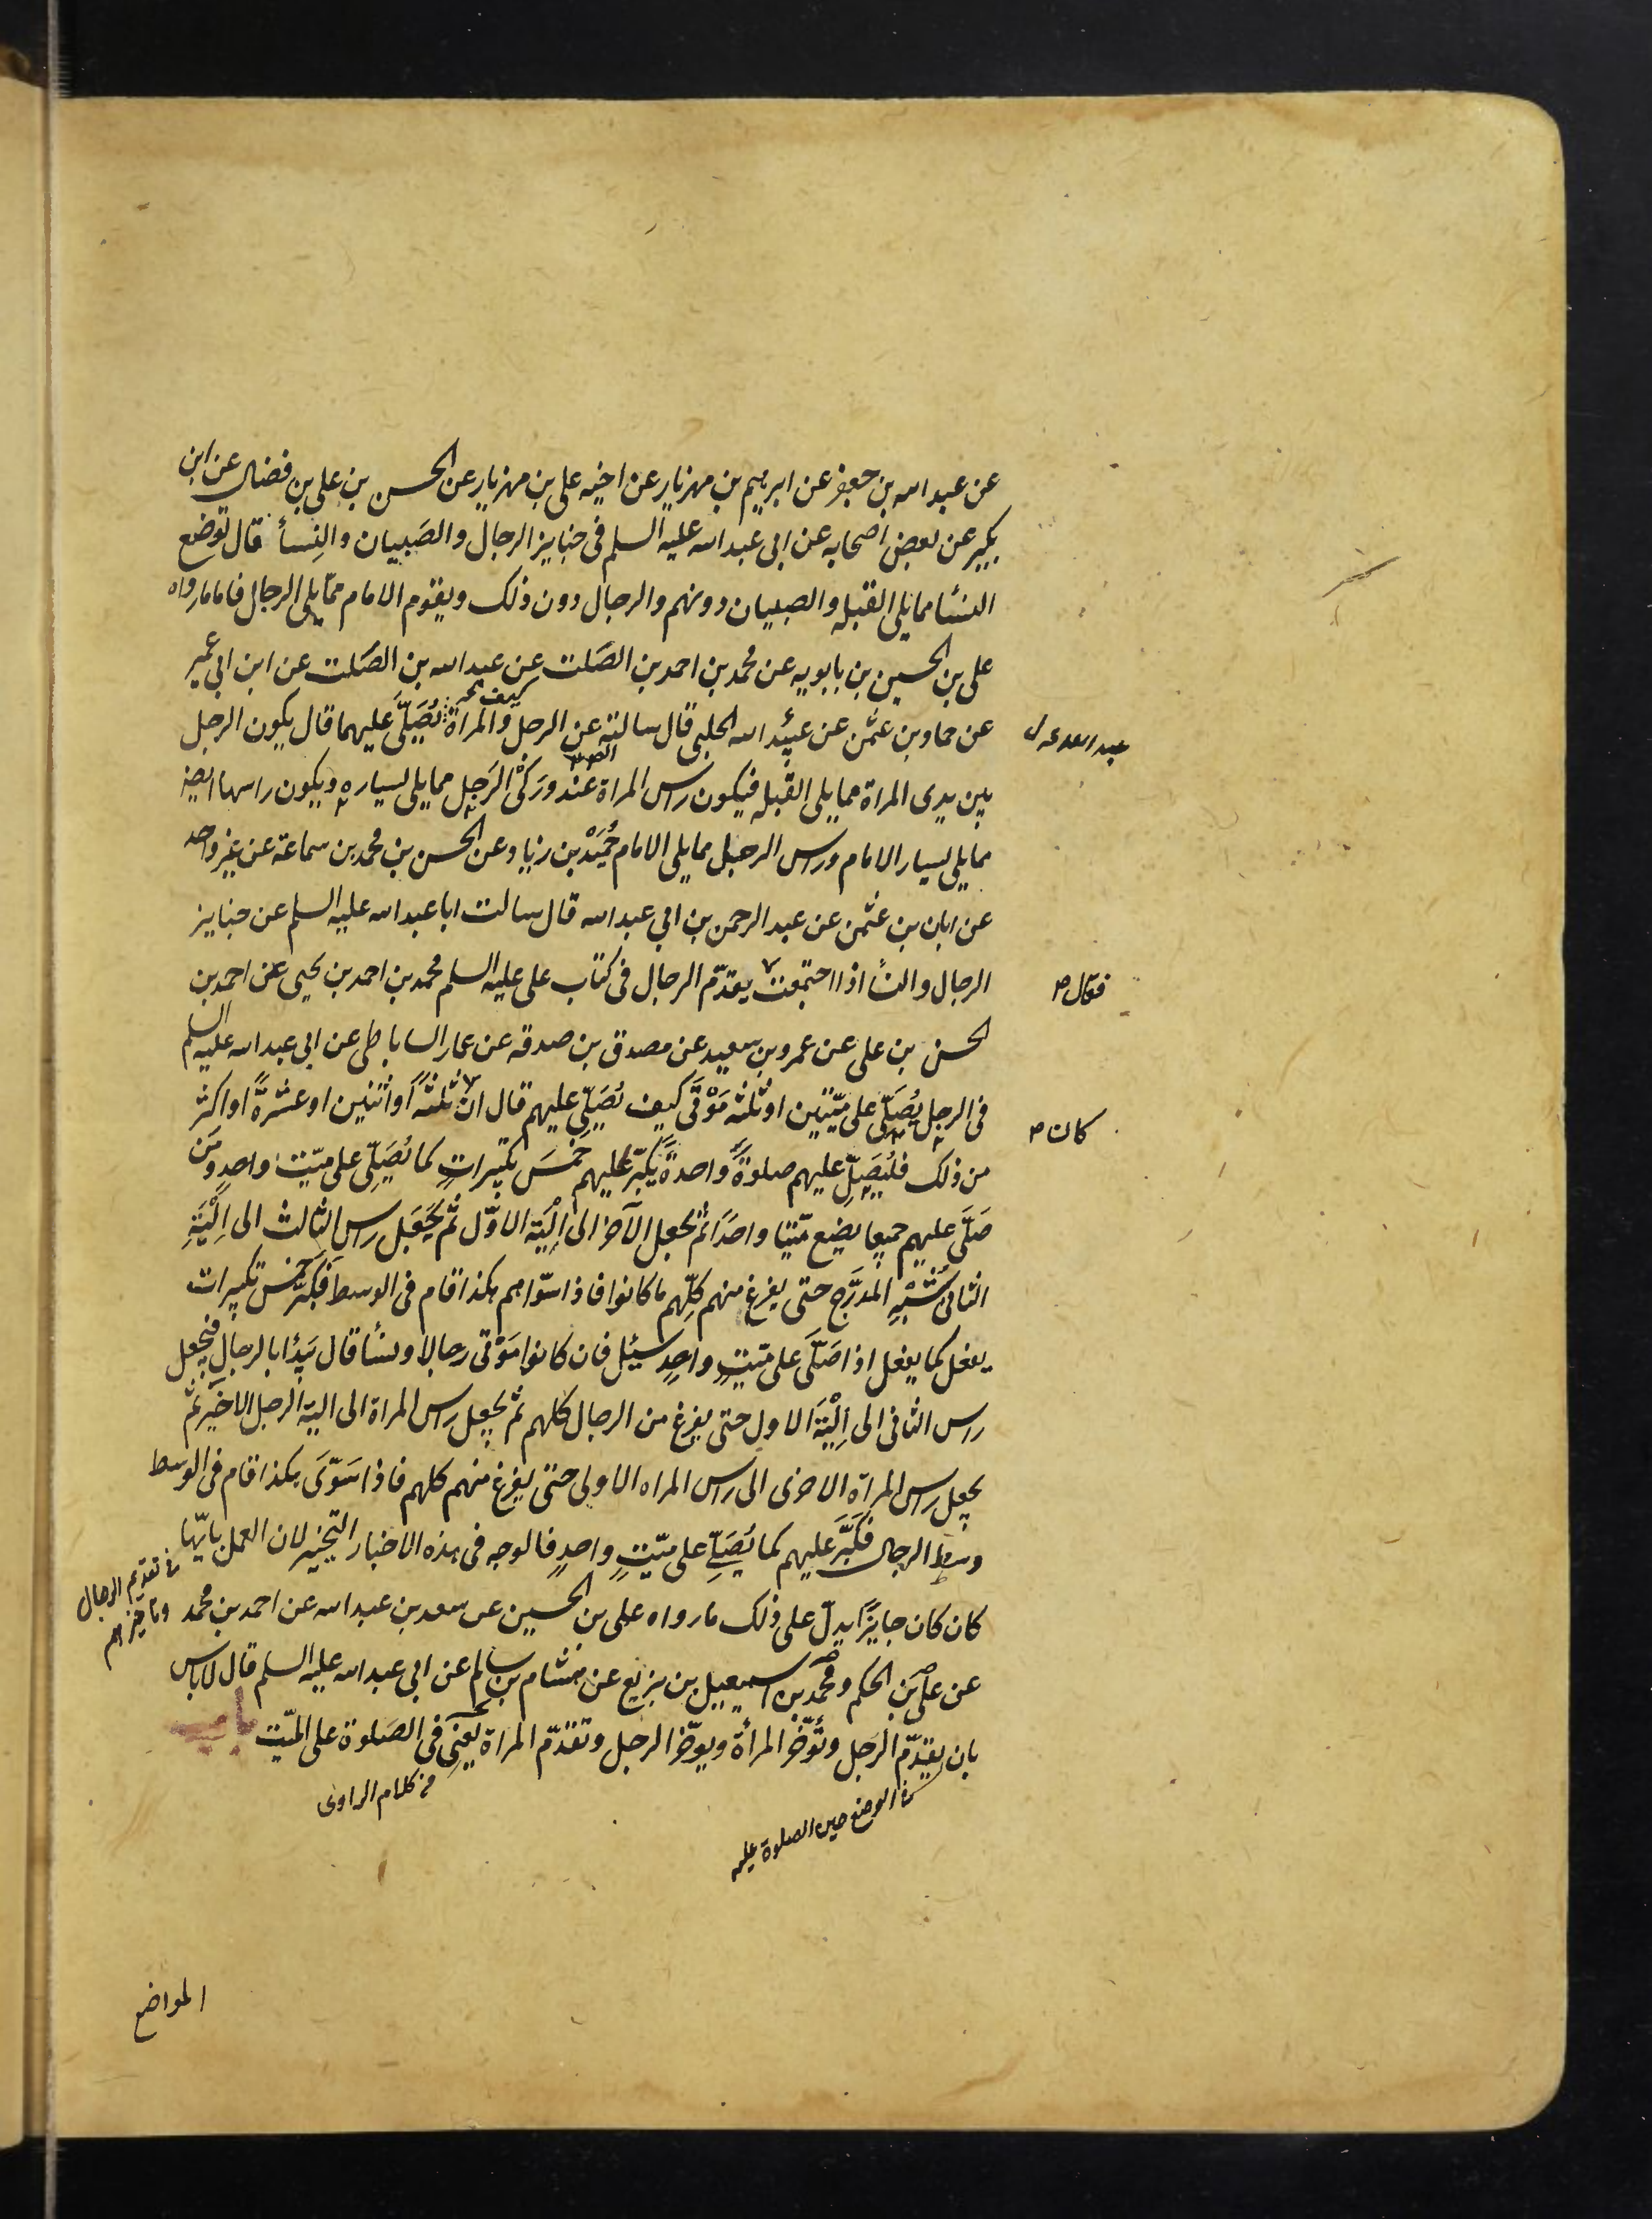 عن عبد الله بن جعفر عن ابرهيم بن مهزيار عن اخيه على بن مهزيار عن الحسن بن على بن فضال عن ابن
بكير عن بعض اصحابه عن ابى عبد الله عليه السلم فى جنايز الرجال والصَبيان والنِسأ قال توضع
النسٔا مما يلى القبله والصبيان دونهم والرجال دون ذلك ويقوم الامام ممّا يلى الرجال فاما ما رواه
على بن الحسين بن بابويه عن محمد بن احمد بن الصَلت عن عبد الله بن الصَلت عن ابن ابى عمير
عن حماد بن عثمن عن عبيد الله الحلبى قال سالته عن الرجل والمراة يُصَلَّى عليهما قال يكون الرجل
كيف
بين يدى المراة مما يلى القبله فيكون راس المراة عند وَرَكَىْ الرَجل مما يلى يساره ويكون راسها ايضا
مما يلى يسار الامام وراس الرجل مما يلى الامام حُمَيْد بن زياد عن الحسن بن محمد بن سماعة عن غير واحد
عن ابان بن عثمن عن عبد الرحمن بن ابى عبد الله قال سالت ابا عبد الله عليه السلم عن جنايز
الرجال والنسأ اذا اجتمعت يقدّم الرجال فى كتاب على عليه السلم محمد بن احمد بن يحيى عن احمد بن
فقال
الحسن بن على عن عمرو بن سعيد عن مصدق بن صدقه عن عمار الساباطى عن ابى عبد الله عليه السلم
فى الرجل يُصَلّى على ميّتين او ثلثه مَوْتَى كيف يُصَلّى عليهم قال ان ثلثةً او اثنين او عشرةً او اكثر
كان
من ذلك فليُصَلِّ عليهم صلوةً واحدةً يكبّر عليهم خمسَ تكبيراتٍ كما يُصَلِّى على ميّت واحدٍ ومَن
صَلَّى عليهم جميعا يضع ميّتا واحدًا ثم يجعل الآخر الى اَلْيَة الاوّل ثم يَجعَل راس الثالث الى اَلْيَةِ
الثانى شِبْهِ المُدَرَّج حتى يفرغ منهم كلّهم ما كانوا فاذا سوّاهم هكذا قام فى الوسط فكبّر خمس تكبيرات
يفعل كما يفعل اذا صَلَّى على ميّتٍ واحدٍ سئِل فان كانوا مَوْتى رجالا ونسأ قال يَبدٔا بالرجال فيجعل
راس الثانى الى اِلْيَة الاول حتى يفرغ من الرجال كلهم ثم يجعل راس المراة الى الية الرجل الاخير ثم
يجعل راس المراة الاخرى الى راس المراه الاولى حتى يفرغ منهم كلهم فاذا سَوَّى هكذا قام فى الوسط
وسط الرجال فكَبَّرَ عليهم كما يُصَلِّى على ميّتٍ واحدٍ فالوجه فى هذه الاخبار التخيير لان العمل بايّها
كان كان جايزًا يدلّ على ذلك ما رواه على بن الحسين عن سعد بن عبد الله عن احمد بن محمد
تقديم الرجال
وتاخيرهم
عن على بن الحكم ومحمد بن اسمعيل بن بزيع عن هشام بن سالم عن ابى عبد الله عليه السلم قال لا باس
بان يقدّم الرَجل وتُؤخّر المرأة ويؤخّر الرجل وتقدّم المراة يعنى فى الصَلوة على الميّت
من كلام الراوى
الوضع حين الصلوة عليه
المواضع